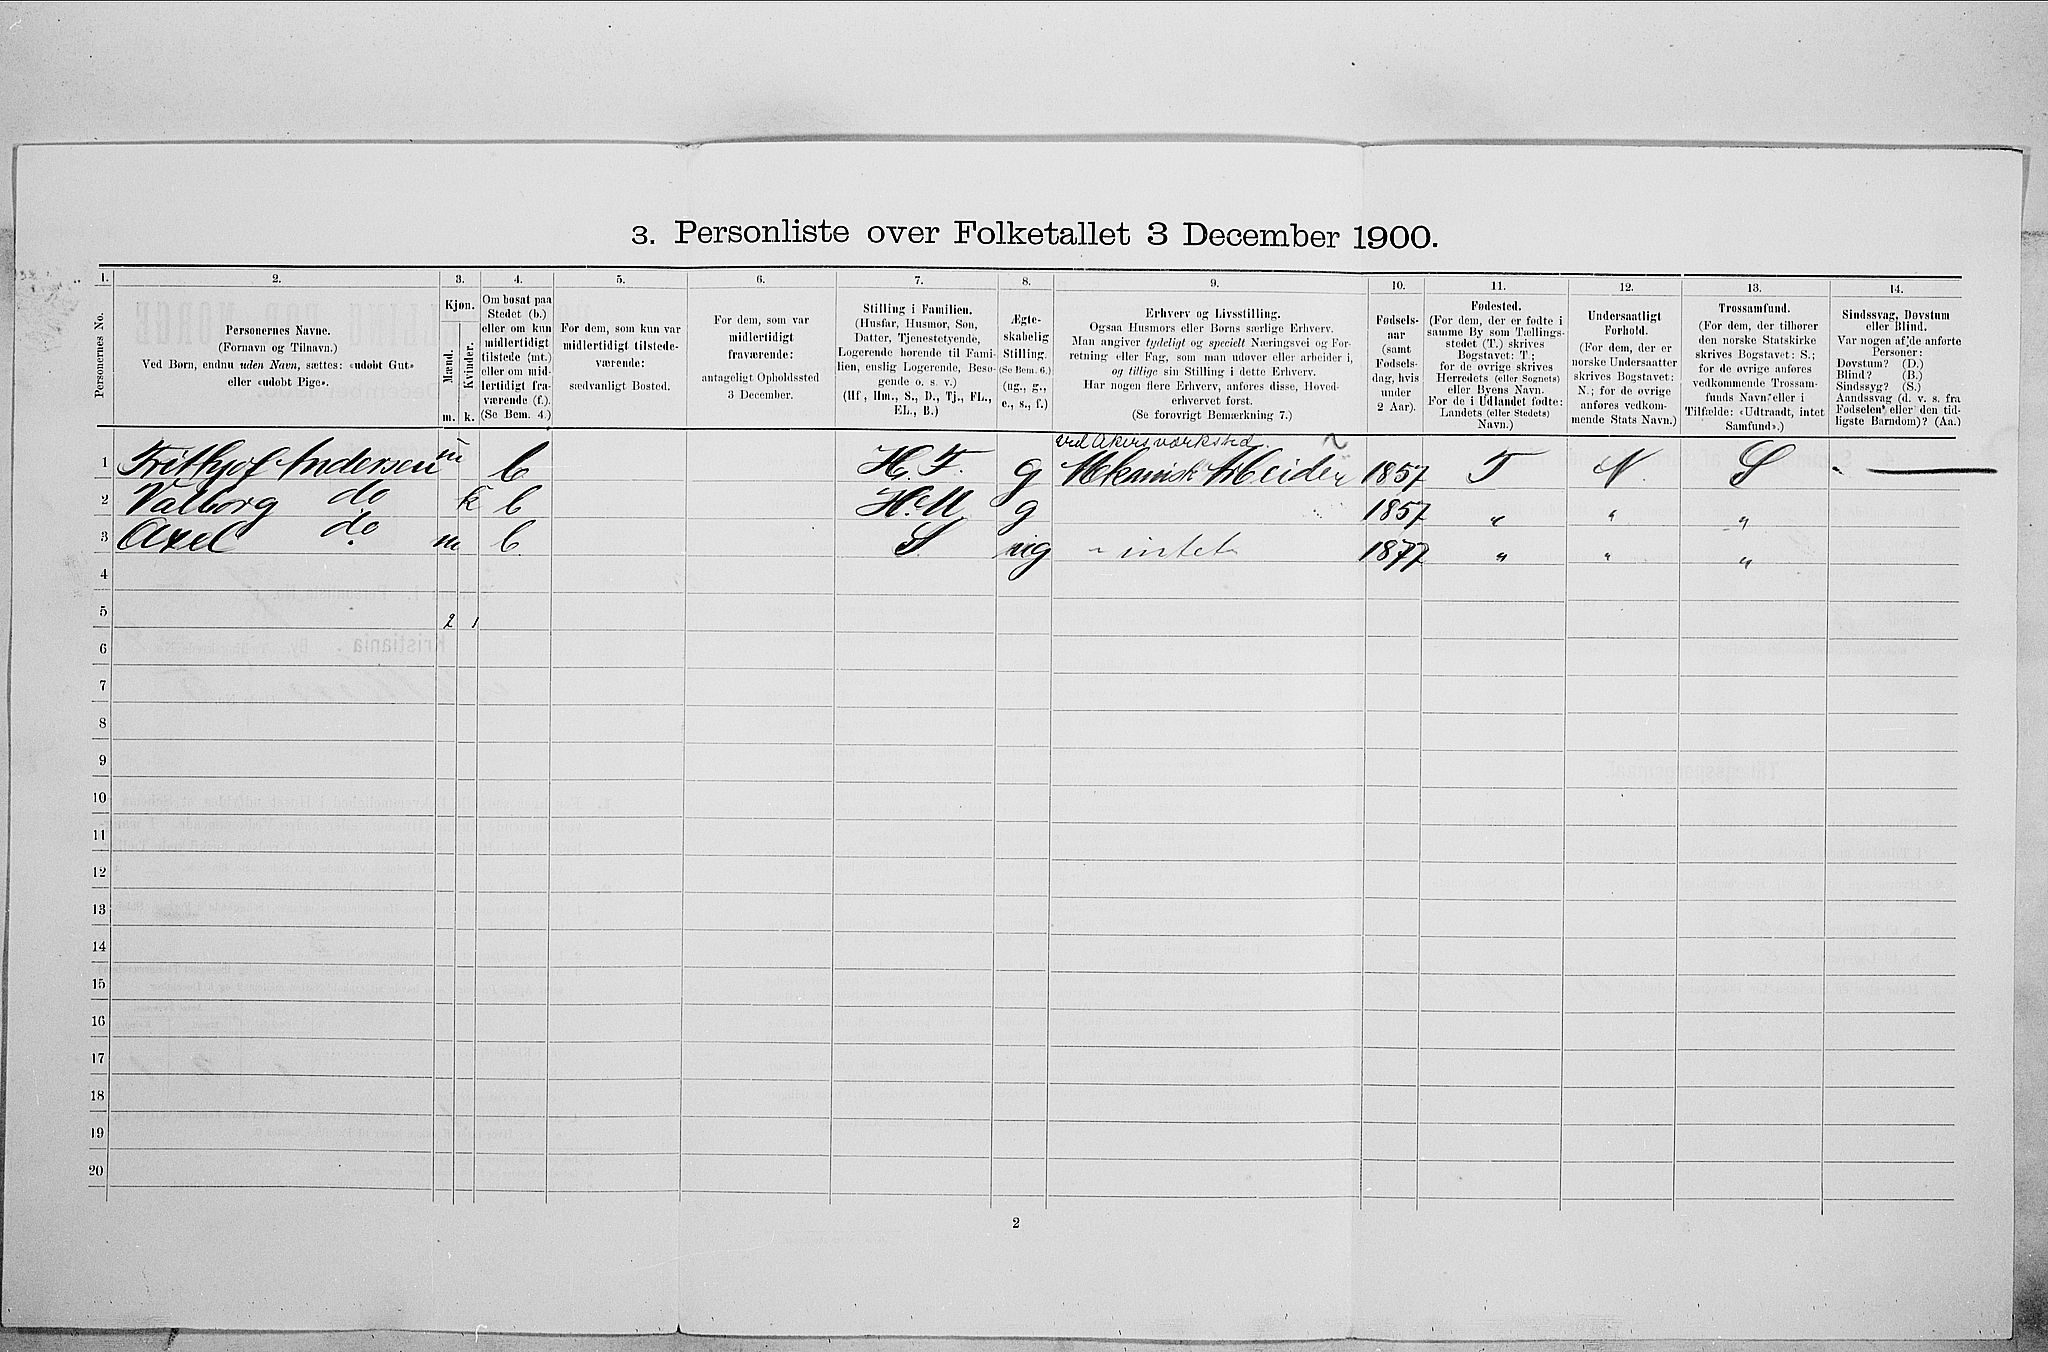 3. Personliste over Folketallet 3 December 1900.
1. 2. 3. 4. 5. 6. 7. 8. 9. 10. 11. 12. 13. 14.
Personernes No.
Personernes Navne.
(Fornavn og Tilnavn.)
Ved Børn, endnu uden Navn, sættes: «udøbt Gut»
eller «udøbt Pige».
Kjøn.
Mænd.
Kvinder.
m. k.
Om bosat paa
Stedet (b.)
eller om kun
midlertidigt
tilstede (mt.)
eller om mid-
lertidigt fra-
værende (f.).
(Se Bem. 4.)
For dem, som kun var
midlertidigt tilstede-
værende:
sædvanligt Bosted.
For dem, som var
midlertidigt
fraværende:
antageligt Opholdssted
3 December.
Stilling i Familien.
(Husfar, Husmor, Søn,
Datter, Tjenestetyende,
Logerende hørende til Fami-
lien, enslig Logerende, Besø-
gende o. s. v.)
(Hf, Hm., S., D., Tj., FL.,
EL., B.)
Ægte-
skabelig
Stilling.
(Se Bem. 6.)
(ug., g.,
e., s., f.)
Erhverv og Livsstilling.
Ogsaa Husmors eller Børns særlige Erhverv.
Man angiver tydeligt og specielt Næringsvei og For-
retning eller Fag, som man udøver eller arbeider i,
og tillige sin Stilling i dette Erhverv.
Har nogen flere Erhverv, anføres disse, Hoved-
erhvervet først.
(Se forøvrigt Bemærkning 7.)
Fødsels-
aar
(samt
Fødsels-
dag, hvis
under
2 Aar).
Fødested.
(For dem, der er fødte i
samme By som Tællings-
stedet (T.) skrives
Bogstavet: T;
for de øvrige skrives
Herredets (eller Sognets)
eller Byens Navn.
For de i Udlandet fødte:
Landets (eller Stedets)
Navn.)
Undersaatligt
Forhold.
(For dem, der er
norske Undersaatter
skrives Bogstavet:
N.; for de øvrige
anføres vedkom-
mende Stats Navn.)
Trossamfund.
(For dem, der tilhører
den norske Statskirke
skrives Bogstavet: S.;
for de øvrige anføres
vedkommende Trossam-
funds Navn eller i
Tilfælde: «Udtraadt, intet
Samfund».)
Sindssvag, Døvstum
eller Blind.
Var nogen af de anførte
Personer:
Døvstum? (D.)
Blind? (B.)
Sindssyg? (S.)
Aandssvag (d. v. s. fra
Fødselen eller den tid-
ligste Barndom)? (Aa.)
ved Akers værksted.
1 Frithjof Andersen m b H. F. g Mekanisk Arbeider 1857 T N. S
2 Valborg do k b H. M. g 1857 " " "
3 Axel do. m b. S ug - intet 1877 " " "
4
5 2 1
6
7
8
9
10
11
12
13
14
15
16
17
18
19
20
2